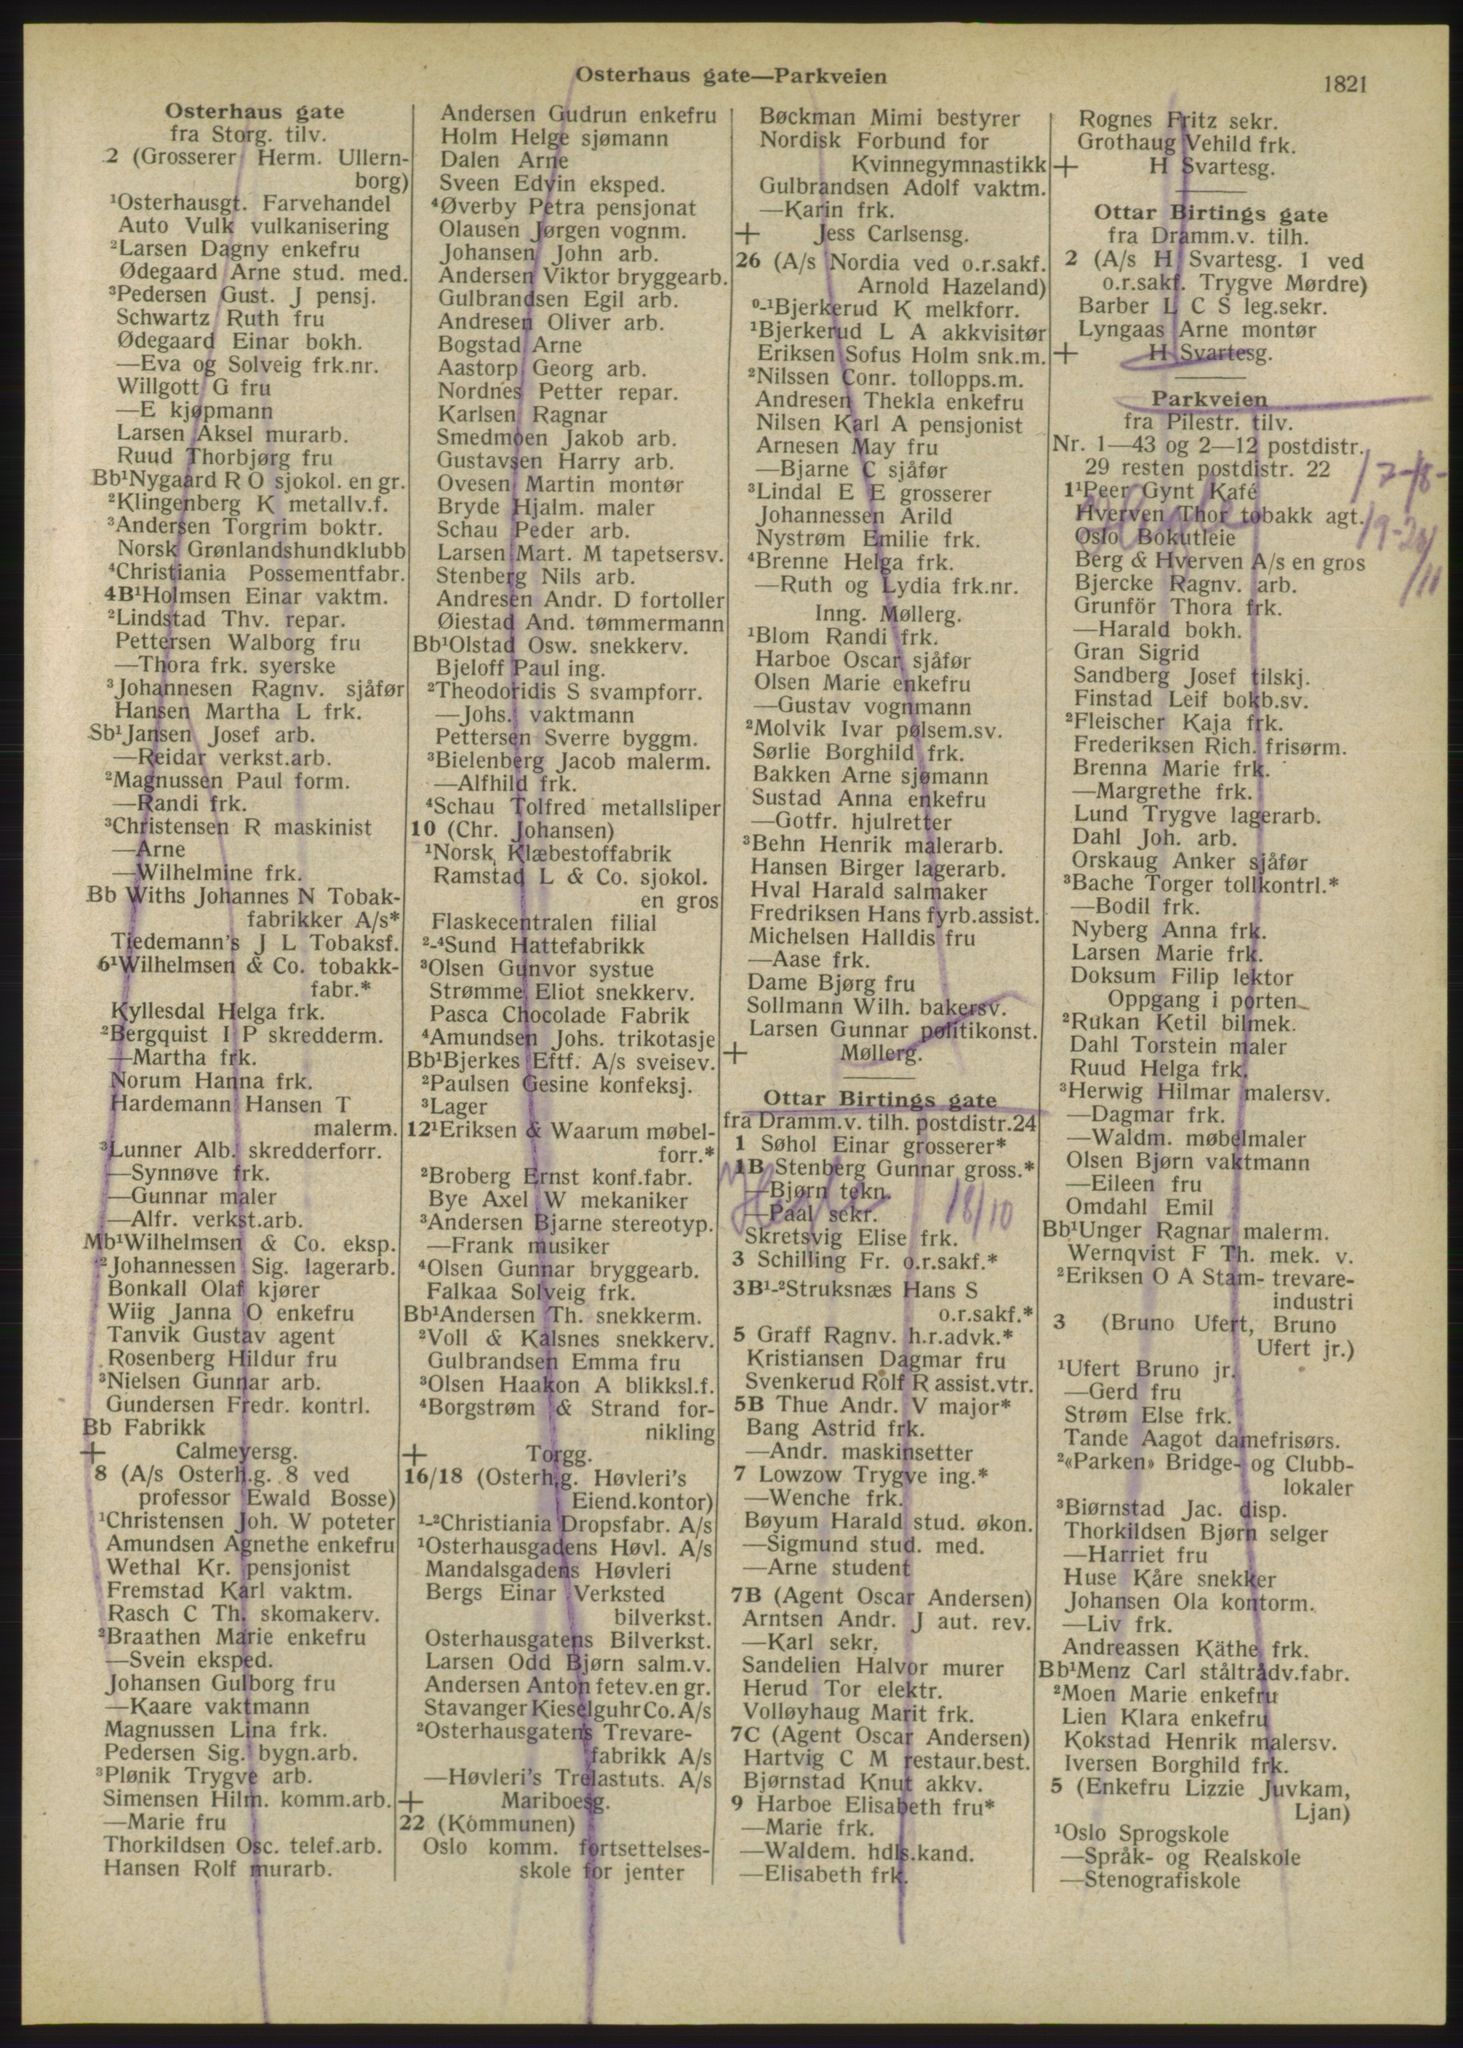 Osterhaus gate—Parkveien
1821
Osterhaus gate
fra Storg. tilv.
2 (Grosserer Herm. Ullern-
borg)
¹Osterhausgt. Farvehandel
Auto Vulk vulkanisering
²Larsen Dagny enkefru
Ødegaard Arne stud. med.
³Pedersen Gust. J pensj.
Schwartz Ruth fru
Ødegaard Einar bokh.
—Eva og Solveig frk.nr.
Willgott G fru
—E kjøpmann
Larsen Aksel murarb.
Ruud Thorbjørg fru
Bb¹Nygaard R O sjokol. en gr.
²Klingenberg K metallv.f.
³Andersen Torgrim boktr.
Norsk Grønlandshundklubb
⁴Christiania Possementfabr.
4B¹Holmsen Einar vaktm.
²Lindstad Thv. repar.
Pettersen Walborg fru
—Thora frk. syerske
³Johannesen Ragnv. sjåfør
Hansen Martha L frk.
Sb¹Jansen Josef arb.
—Reidar verkst.arb.
²Magnussen Paul form.
—Randi frk.
³Christensen R maskinist
—Arne
—Wilhelmine frk.
Bb Withs Johannes N Tobak-
fabrikker A/s*
Tiedemann's J L Tobaksf.
6¹Wilhelmsen & Co. tobakk-
fabr.*
Kyllesdal Helga frk.
²Bergquist I P skredderm.
—Martha frk.
Norum Hanna frk.
Hardemann Hansen T
malerm.
³Lunner Alb. skredderforr.
—Synnøve frk.
—Gunnar maler
—Alfr. verkst.arb.
Mb¹Wilhelmsen & Co. eksp.
²Johannessen Sig. lagerarb.
Bonkall Olaf kjører
Wiig Janna O enkefru
Tanvik Gustav agent
Rosenberg Hildur fru
³Nielsen Gunnar arb.
Gundersen Fredr. kontrl.
Bb Fabrikk
+ Calmeyersg.
8 (A/s Osterh.g. 8 ved
professor Ewald Bosse)
¹Christensen Joh. W poteter
Amundsen Agnethe enkefru
Wethal Kr. pensjonist
Fremstad Karl vaktm.
Rasch C Th. skomakerv.
²Braathen Marie enkefru
—Svein eksped.
Johansen Gulborg fru
—Kaare vaktmann
Magnussen Lina frk.
Pedersen Sig. bygn.arb.
³Plønik Trygve arb.
Simensen Hilm. komm.arb.
—Marie fru
Thorkildsen Osc. telef.arb.
Hansen Rolf murarb.
Andersen Gudrun enkefru
Holm Helge sjømann
Dalen Arne
Sveen Edvin eksped.
⁴Øverby Petra pensjonat
Olausen Jørgen vognm.
Johansen John arb.
Andersen Viktor bryggearb.
Gulbrandsen Egil arb.
Andresen Oliver arb.
Bogstad Arne
Aastorp Georg arb.
Nordnes Petter repar.
Karlsen Ragnar
Smedmoen Jakob arb.
Gustavsen Harry arb.
Ovesen Martin montør
Bryde Hjalm. maler
Schau Peder arb.
Larsen Mart. M tapetsersv.
Stenberg Nils arb.
Andresen Andr. D fortoller
Øiestad And. tømmermann
Bb¹Olstad Osw. snekkerv.
Bjeloff Paul ing.
²Theodoridis S svampforr.
—Johs. vaktmann
Pettersen Sverre byggm.
³Bielenberg Jacob malerm.
—Alfhild frk.
⁴Schau Tolfred metallsliper
10 (Chr. Johansen)
¹Norsk Klæbestoffabrik
Ramstad L & Co. sjokol.
en gros
Flaskecentralen filial
²-⁴Sund Hattefabrikk
³Olsen Gunvor systue
Strømme Eliot snekkerv.
Pasca Chocolade Fabrik
⁴Amundsen Johs. trikotasje
Bb¹Bjerkes Eftf. A/s sveisev.
²Paulsen Gesine konfeksj.
³Lager
12¹Eriksen & Waarum møbel-
forr.*
²Broberg Ernst konf.fabr.
Bye Axel W mekaniker
³Andersen Bjarne stereotyp.
—Frank musiker
⁴Olsen Gunnar bryggearb.
Falkaa Solveig frk.
Bb¹Andersen Th. snekkerm.
²Voll & Kalsnes snekkerv.
Gulbrandsen Emma fru
³Olsen Haakon A blikksl.f.
⁴Borgstrøm & Strand for-
nikling
+ Torgg.
16/18 (Osterh.g. Høvleri's
Eiend.kontor)
¹-²Christiania Dropsfabr. A/s
¹Osterhausgadens Høvl. A/s
Mandalsgadens Høvleri
Bergs Einar Verksted
bilverkst.
Osterhausgatens Bilverkst.
Larsen Odd Bjørn salm.v.
Andersen Anton fetev.en gr.
Stavanger Kieselguhr Co. A/s
²Osterhausgatens Trevare-
fabrikk A/s
—Høvleri's Trelastuts. A/s
+ Mariboesg.
22 (Kommunen)
Oslo komm. fortsettelses-
skole for jenter
Bøckman Mimi bestyrer
Nordisk Forbund for
Kvinnegymnastikk
Gulbrandsen Adolf vaktm.
—Karin frk.
+ Jess Carlsensg.
26 (A/s Nordia ved o.r.sakf.
Arnold Hazeland)
⁰-¹Bjerkerud K melkforr.
¹Bjerkerud L A akkvisitør
Eriksen Sofus Holm snk.m.
²Nilssen Conr. tollopps.m.
Andresen Thekla enkefru
Nilsen Karl A pensjonist
Arnesen May fru
—Bjarne C sjåfør
³Lindal E E grosserer
Johannessen Arild
Nystrøm Emilie frk.
⁴Brenne Helga frk.
—Ruth og Lydia frk.nr.
Inng. Møllerg.
¹Blom Randi frk.
Harboe Oscar sjåfør
Olsen Marie enkefru
—Gustav vognmann
²Molvik Ivar pølsem.sv.
Sørlie Borghild frk.
Bakken Arne sjømann
Sustad Anna enkefru
—Gotfr. hjulretter
³Behn Henrik malerarb.
Hansen Birger lagerarb.
Hval Harald salmaker
Fredriksen Hans fyrb.assist.
Michelsen Halldis fru
—Aase frk.
Dame Bjørg fru
Sollmann Wilh. bakersv.
Larsen Gunnar politikonst.
+ Møllerg.
Ottar Birtings gate
fra Dramm.v. tilh. postdistr.24
1 Søhol Einar grosserer*
1B Stenberg Gunnar gross.*
—Bjørn tekn.
—Paal sekr.
18/10
Skretsvig Elise frk.
3 Schilling Fr. o.r.sakf.*
3B¹-²Struksnæs Hans S
o.r.sakf.*
5 Graff Ragnv. h.r.advk.*
Kristiansen Dagmar fru
Svenkerud Rolf R assist.vtr.
5B Thue Andr. V major*
Bang Astrid frk.
—Andr. maskinsetter
7 Lowzow Trygve ing.*
—Wenche frk.
Bøyum Harald stud. økon.
—Sigmund stud. med.
—Arne student
7B (Agent Oscar Andersen)
Arntsen Andr. J aut. rev.
—Karl sekr.
Sandelien Halvor murer
Herud Tor elektr.
Volløyhaug Marit frk.
7C (Agent Oscar Andersen)
Hartvig C M restaur.best.
Bjørnstad Knut akkv.
9 Harboe Elisabeth fru*
—Marie frk.
—Waldem. hdls.kand.
—Elisabeth frk.
Rognes Fritz sekr.
Grothaug Vehild frk.
+ H Svartesg.
Ottar Birtings gate
fra Dramm.v. tilh.
2 (A/s H Svartesg. 1 ved
o.r.sakf. Trygve Mørdre)
Barber L C S leg.sekr.
Lyngaas Arne montør
+ H Svartesg.
Parkveien
fra Pilestr. tilv.
Nr. 1—43 og 2—12 postdistr.
29 resten postdistr. 22
1¹Peer Gynt Kafé
Hverven Thor tobakk agt.
Oslo Bokutleie
Berg & Hverven A/s en gros
Bjercke Ragnv. arb.
Grunför Thora frk.
—Harald bokh.
Gran Sigrid
Sandberg Josef tilskj.
Finstad Leif bokb.sv.
²Fleischer Kaja frk.
Frederiksen Rich. frisørm.
Brenna Marie frk.
—Margrethe frk.
Lund Trygve lagerarb.
Dahl Joh. arb.
Orskaug Anker sjåfør
³Bache Torger tollkontrl.*
—Bodil frk.
Nyberg Anna frk.
Larsen Marie frk.
Doksum Filip lektor
Oppgang i porten
²Rukan Ketil bilmek.
Dahl Torstein maler
Ruud Helga frk.
³Herwig Hilmar malersv.
—Dagmar frk.
—Waldm. møbelmaler
Olsen Bjørn vaktmann
—Eileen fru
Omdahl Emil
Bb¹Unger Ragnar malerm.
Wernqvist F Th. mek. v.
²Eriksen O A Stam- trevare-
industri
3 (Bruno Ufert, Bruno
Ufert jr.)
¹Ufert Bruno jr.
—Gerd fru
Strøm Else frk.
Tande Aagot damefrisørs.
²«Parken» Bridge- og Clubb-
lokaler
³Biørnstad Jac. disp.
Thorkildsen Bjørn selger
—Harriet fru
Huse Kåre snekker
Johansen Ola kontorm.
—Liv frk.
Andreassen Käthe frk.
Bb¹Menz Carl ståltrådv.fabr.
²Moen Marie enkefru
Lien Klara enkefru
Kokstad Henrik malersv.
Iversen Borghild frk.
5 (Enkefru Lizzie Juvkam,
Ljan)
¹Oslo Sprogskole
—Språk- og Realskole
—Stenografiskole